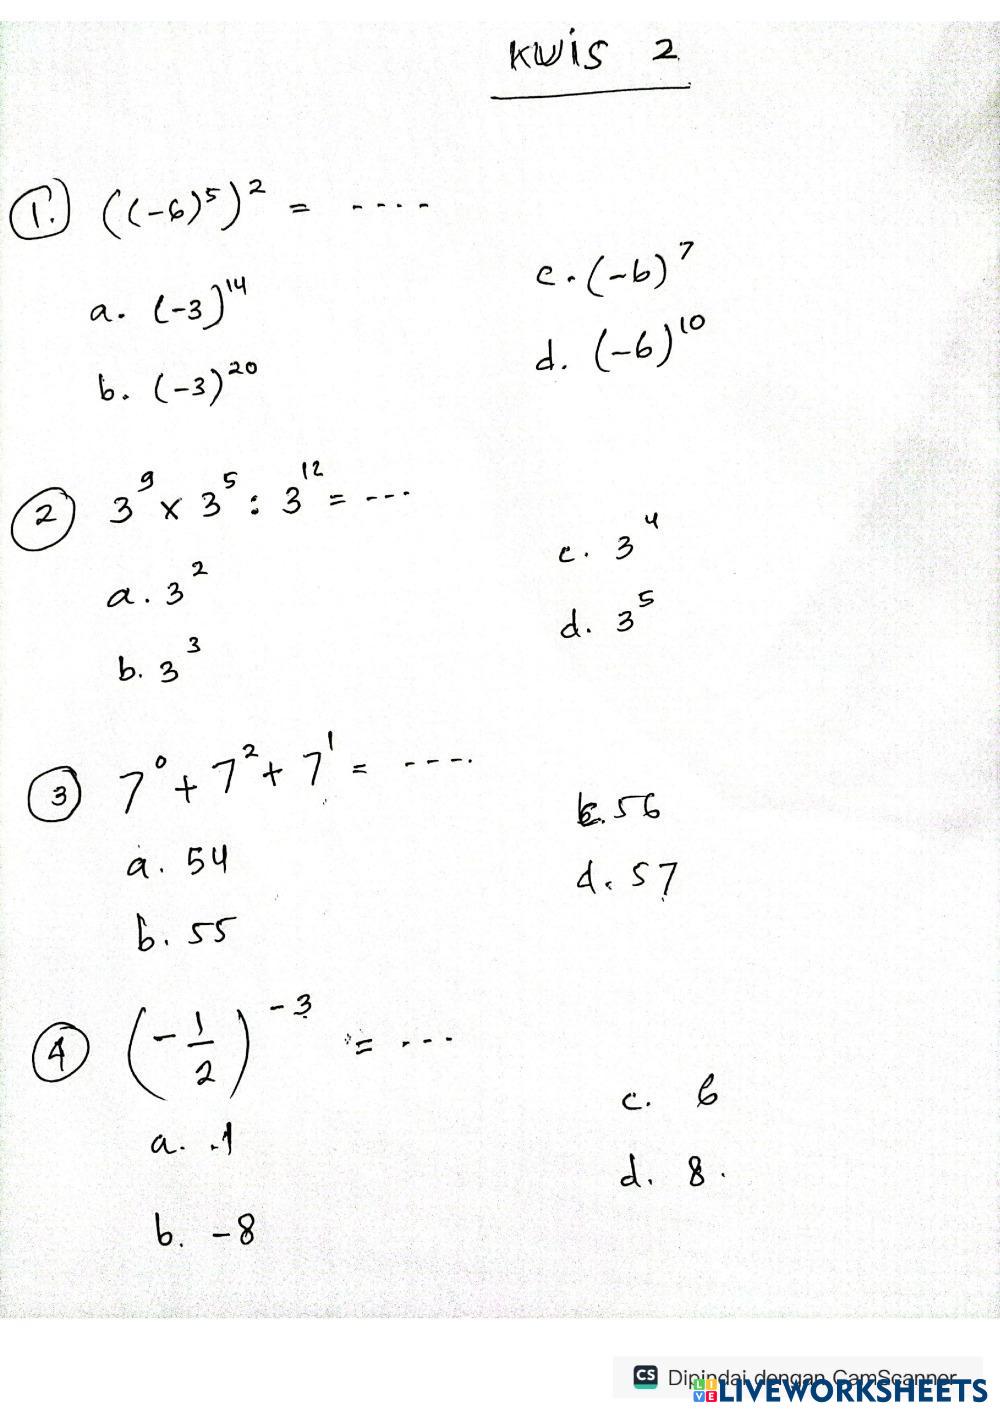 KWIS 2
1. ((-6)⁵)² = ....
a. (-3)¹⁴
b. (-3)²⁰
c. (-6)⁷
d. (-6)¹⁰
2 3⁹ x 3⁵ : 3¹² = ...
a. 3²
b. 3³
c. 3⁴
d. 3⁵
3 7⁰ + 7² + 7¹ = ....
a. 54
b. 55
c. 56
d. 57
4 (-1/2)⁻³ = ...
a. -1
b. -8
c. 6
d. 8.
CS Dipindai dengan CamScanner
LIVEWORKSHEETS